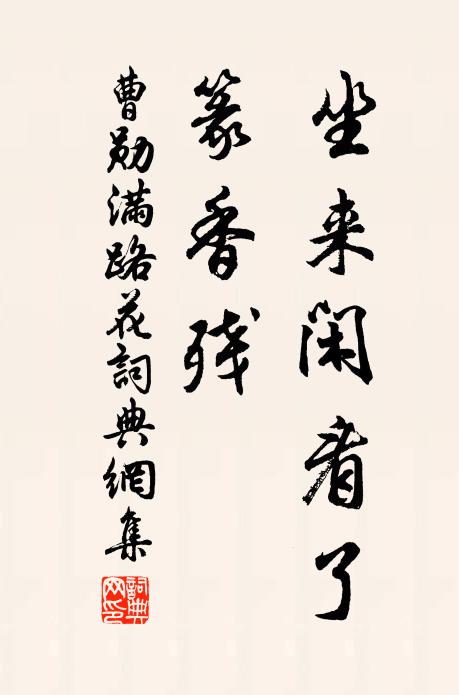 坐来闲看了
篆香残
曹勋满路花詞典網集
詞典网印